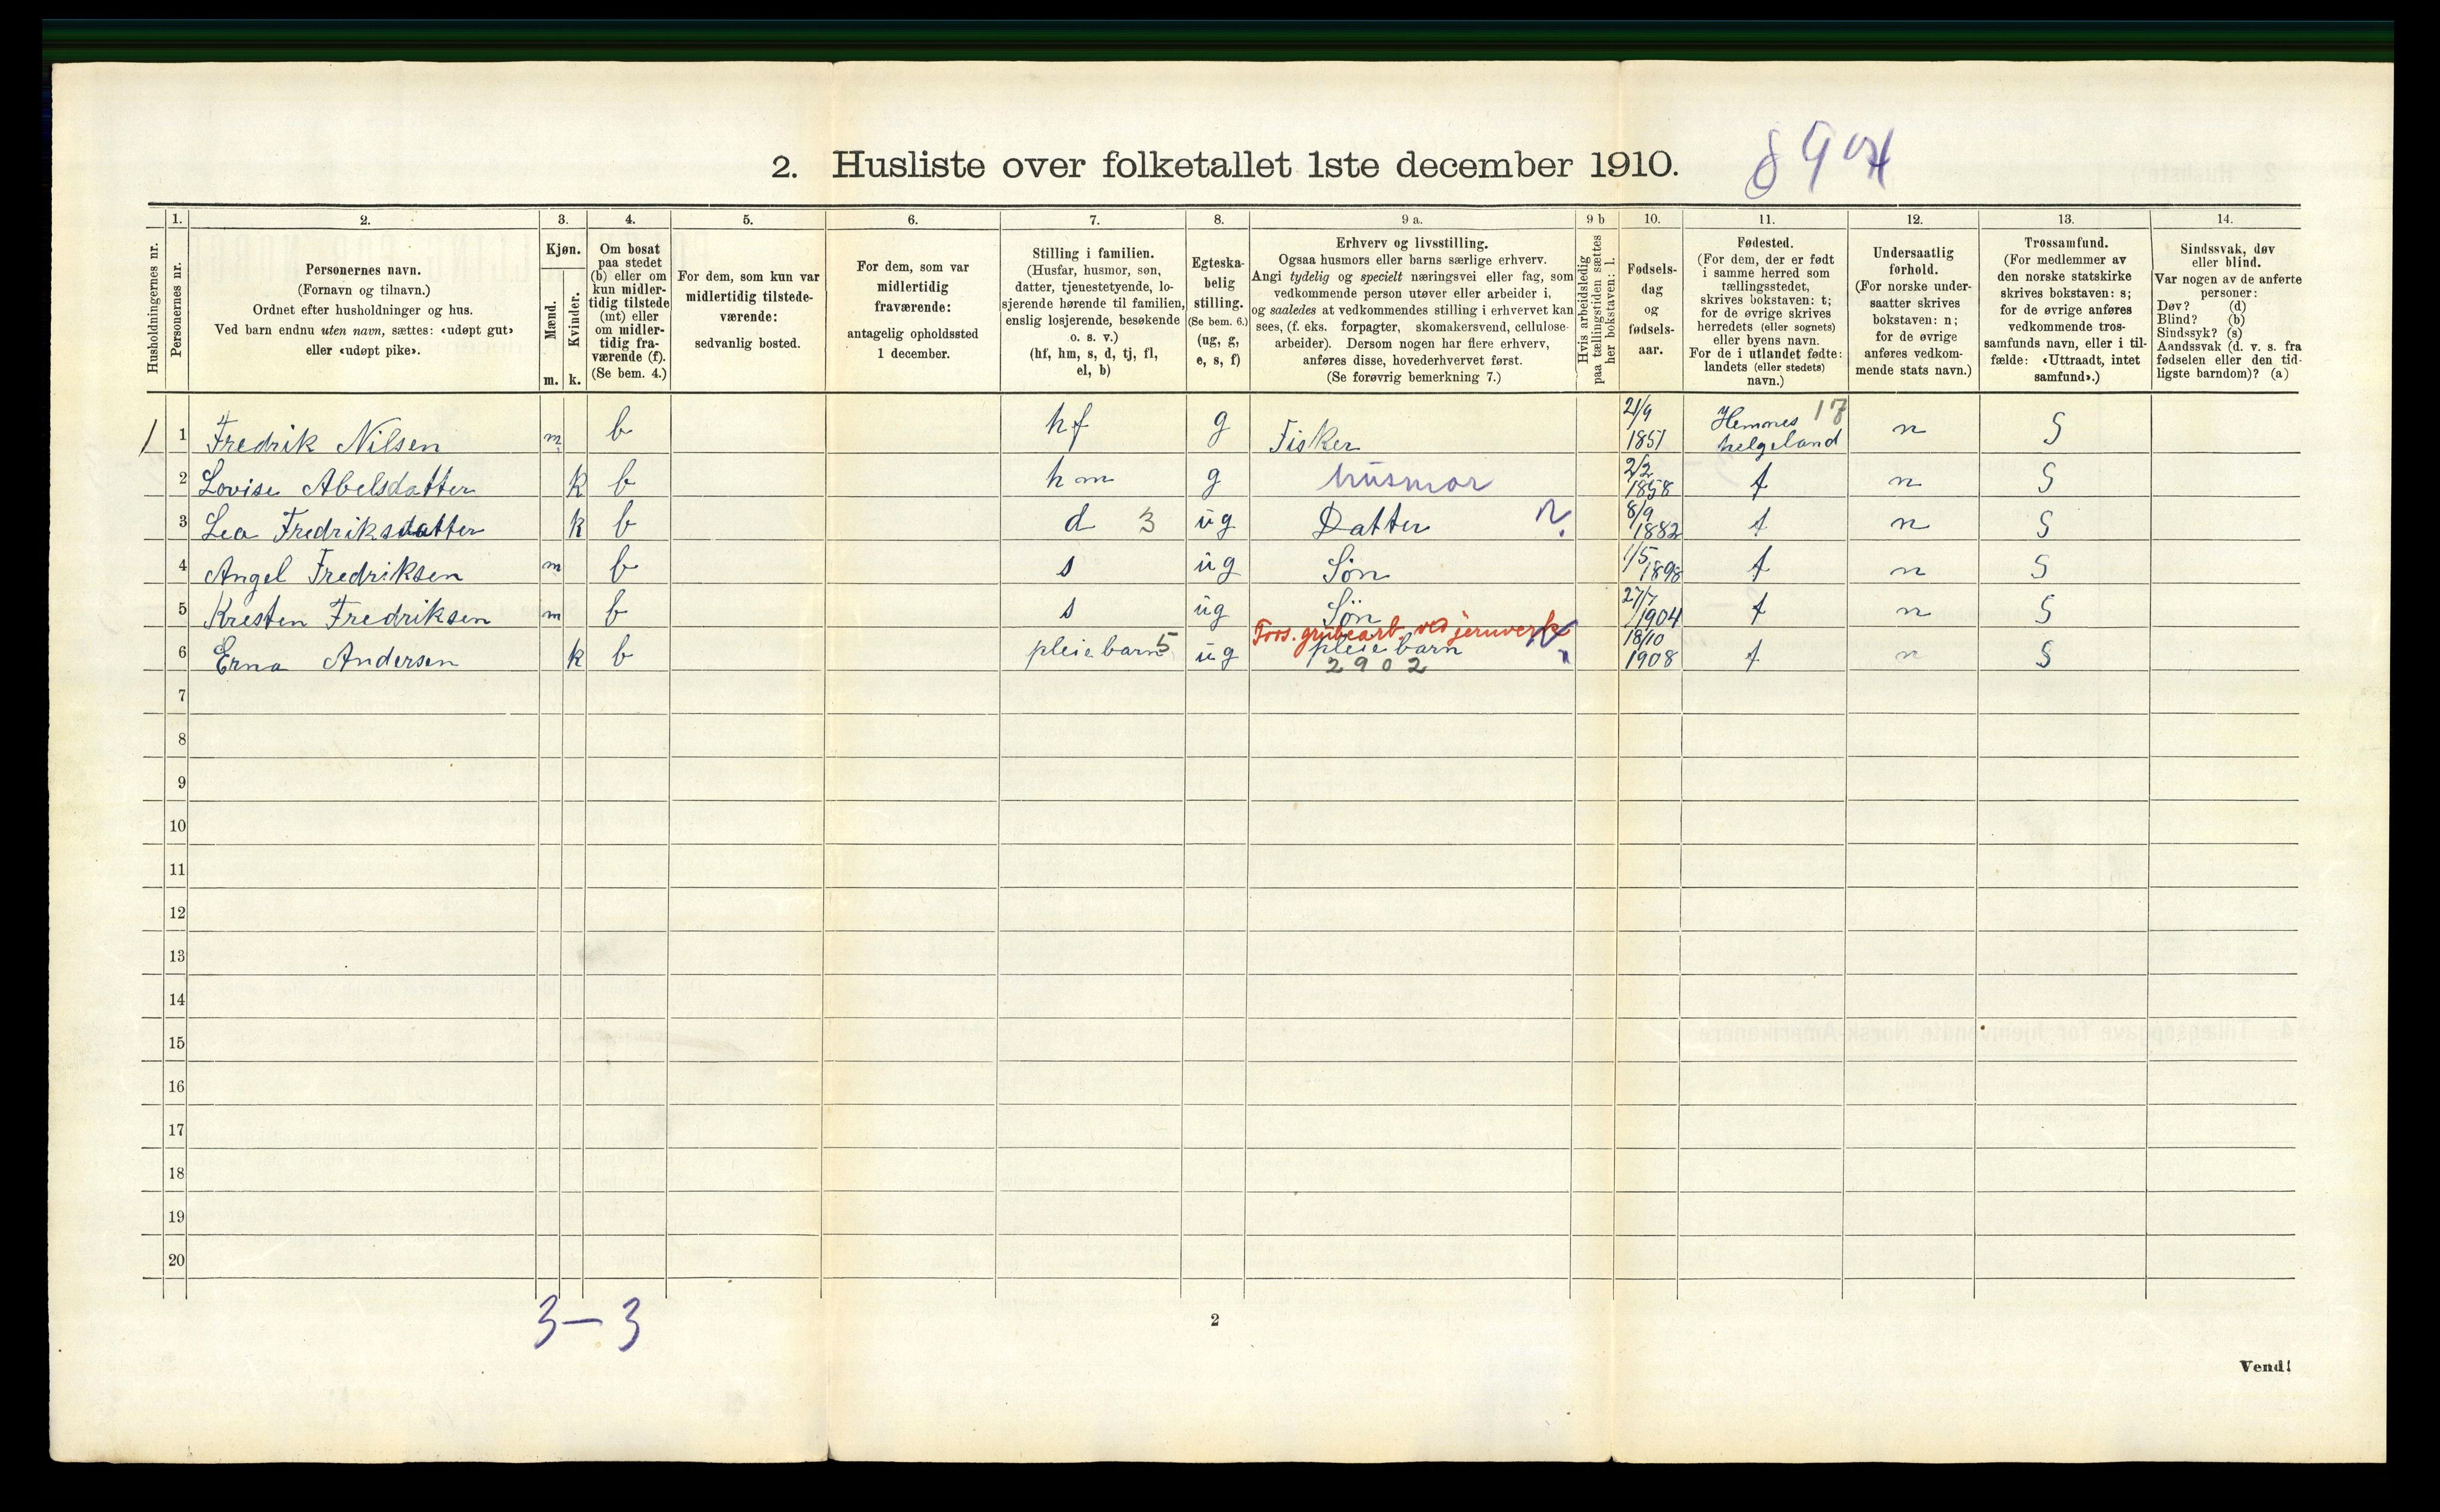 2. Husliste over folketallet 1ste december 1910.
1. 2. 3. 4. 5. 6. 7. 8. 9 a. 9 b 10. 11. 12. 13. 14.
Husholdningernes nr.
Personernes nr.
Personernes navn.
(Fornavn og tilnavn.)
Ordnet efter husholdninger og hus.
Ved barn endnu uten navn, sættes: «udøpt gut»
eller «udøpt pike».
Kjøn.
Mænd.
Kvinder.
m. k.
Om bosat
paa stedet
(b) eller om
kun midler-
tidig tilstede
(mt) eller
om midler-
tidig fra-
værende (f).
(Se bem. 4.)
For dem, som kun var
midlertidig tilstede-
værende:
sedvanlig bosted.
For dem, som var
midlertidig
fraværende:
antagelig opholdssted
1 december.
Stilling i familien.
(Husfar, husmor, søn,
datter, tjenestetyende, lo-
sjerende hørende til familien,
enslig losjerende, besøkende
o. s. v.)
(hf, hm, s, d, tj, fl,
el, b)
Egteska-
belig
stilling.
(Se bem. 6.)
(ug, g,
e, s, f)
Erhverv og livsstilling.
Ogsaa husmors eller barns særlige erhverv.
Angi tydelig og specielt næringsvei eller fag, som
vedkommende person utøver eller arbeider i,
og saaledes at vedkommendes stilling i erhvervet kan
sees, (f. eks. forpagter, skomakersvend, cellulose-
arbeider). Dersom nogen har flere erhverv,
anføres disse, hovederhvervet først.
(Se forøvrig bemerkning 7.)
Hvis arbeidsledig
paa tællingstiden sættes
her bokstaven: l.
Fødsels-
dag
og
fødsels-
aar.
Fødested.
(For dem, der er født
i samme herred som
tællingsstedet,
skrives bokstaven: t;
for de øvrige skrives
herredets (eller sognets)
eller byens navn.
For de i utlandet fødte:
landets (eller stedets)
navn.)
Undersaatlig
forhold.
(For norske under-
saatter skrives
bokstaven: n;
for de øvrige
anføres vedkom-
mende stats navn.)
Trossamfund.
(For medlemmer av
den norske statskirke
skrives bokstaven: s;
for de øvrige anføres
vedkommende tros-
samfunds navn, eller i til-
fælde: «Uttraadt, intet
samfund».)
Sindssvak, døv
eller blind.
Var nogen av de anførte
personer:
Døv? (d)
Blind? (b)
Sindssyk? (s)
Aandssvak (d. v. s. fra
fødselen eller den tid-
ligste barndom)? (a)
1 1 Fredrik Nilsen m b hf g Fisker 21/9 1851 Hemnes 17 helgeland n S
2 Lovise Abelsdatter k b hm g husmor 2/2 1858 t n S
3 Lea Fredriksdatter k b d 3 ug Datter 8/9 1882 t n S
4 Angel Fredriksen m b s ug Søn 1/5 1898 t n S
5 Kresten Fredriksen m b s ug Søn 27/7 1904 t n S
Fors. grubearb. ved jernverk
6 Erna Andersen k b pleiebarn 5 ug pleiebarn 18/10 1908 t n S
2902
7
8
9
10
11
12
13
14
15
16
17
18
19
20
3 – 3
2
Vend!